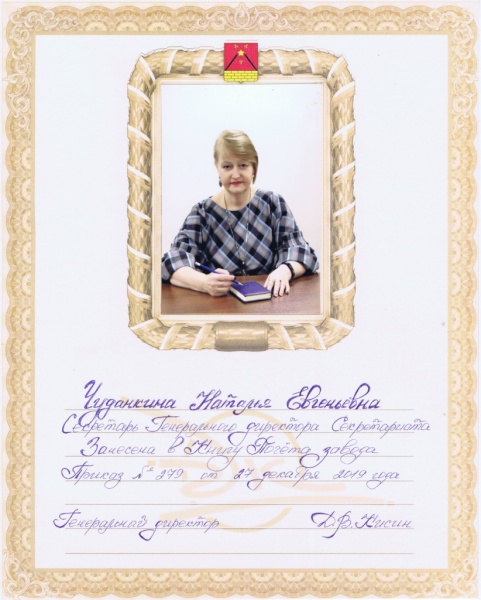 Чуданкина Наталья Евгеньевна
Секретарь Генерального директора Секретариата
Занесена в Книгу Почёта завода
Приказ № 279 от 27 декабря 2019 года
Генеральный директор Д.В. Кисин